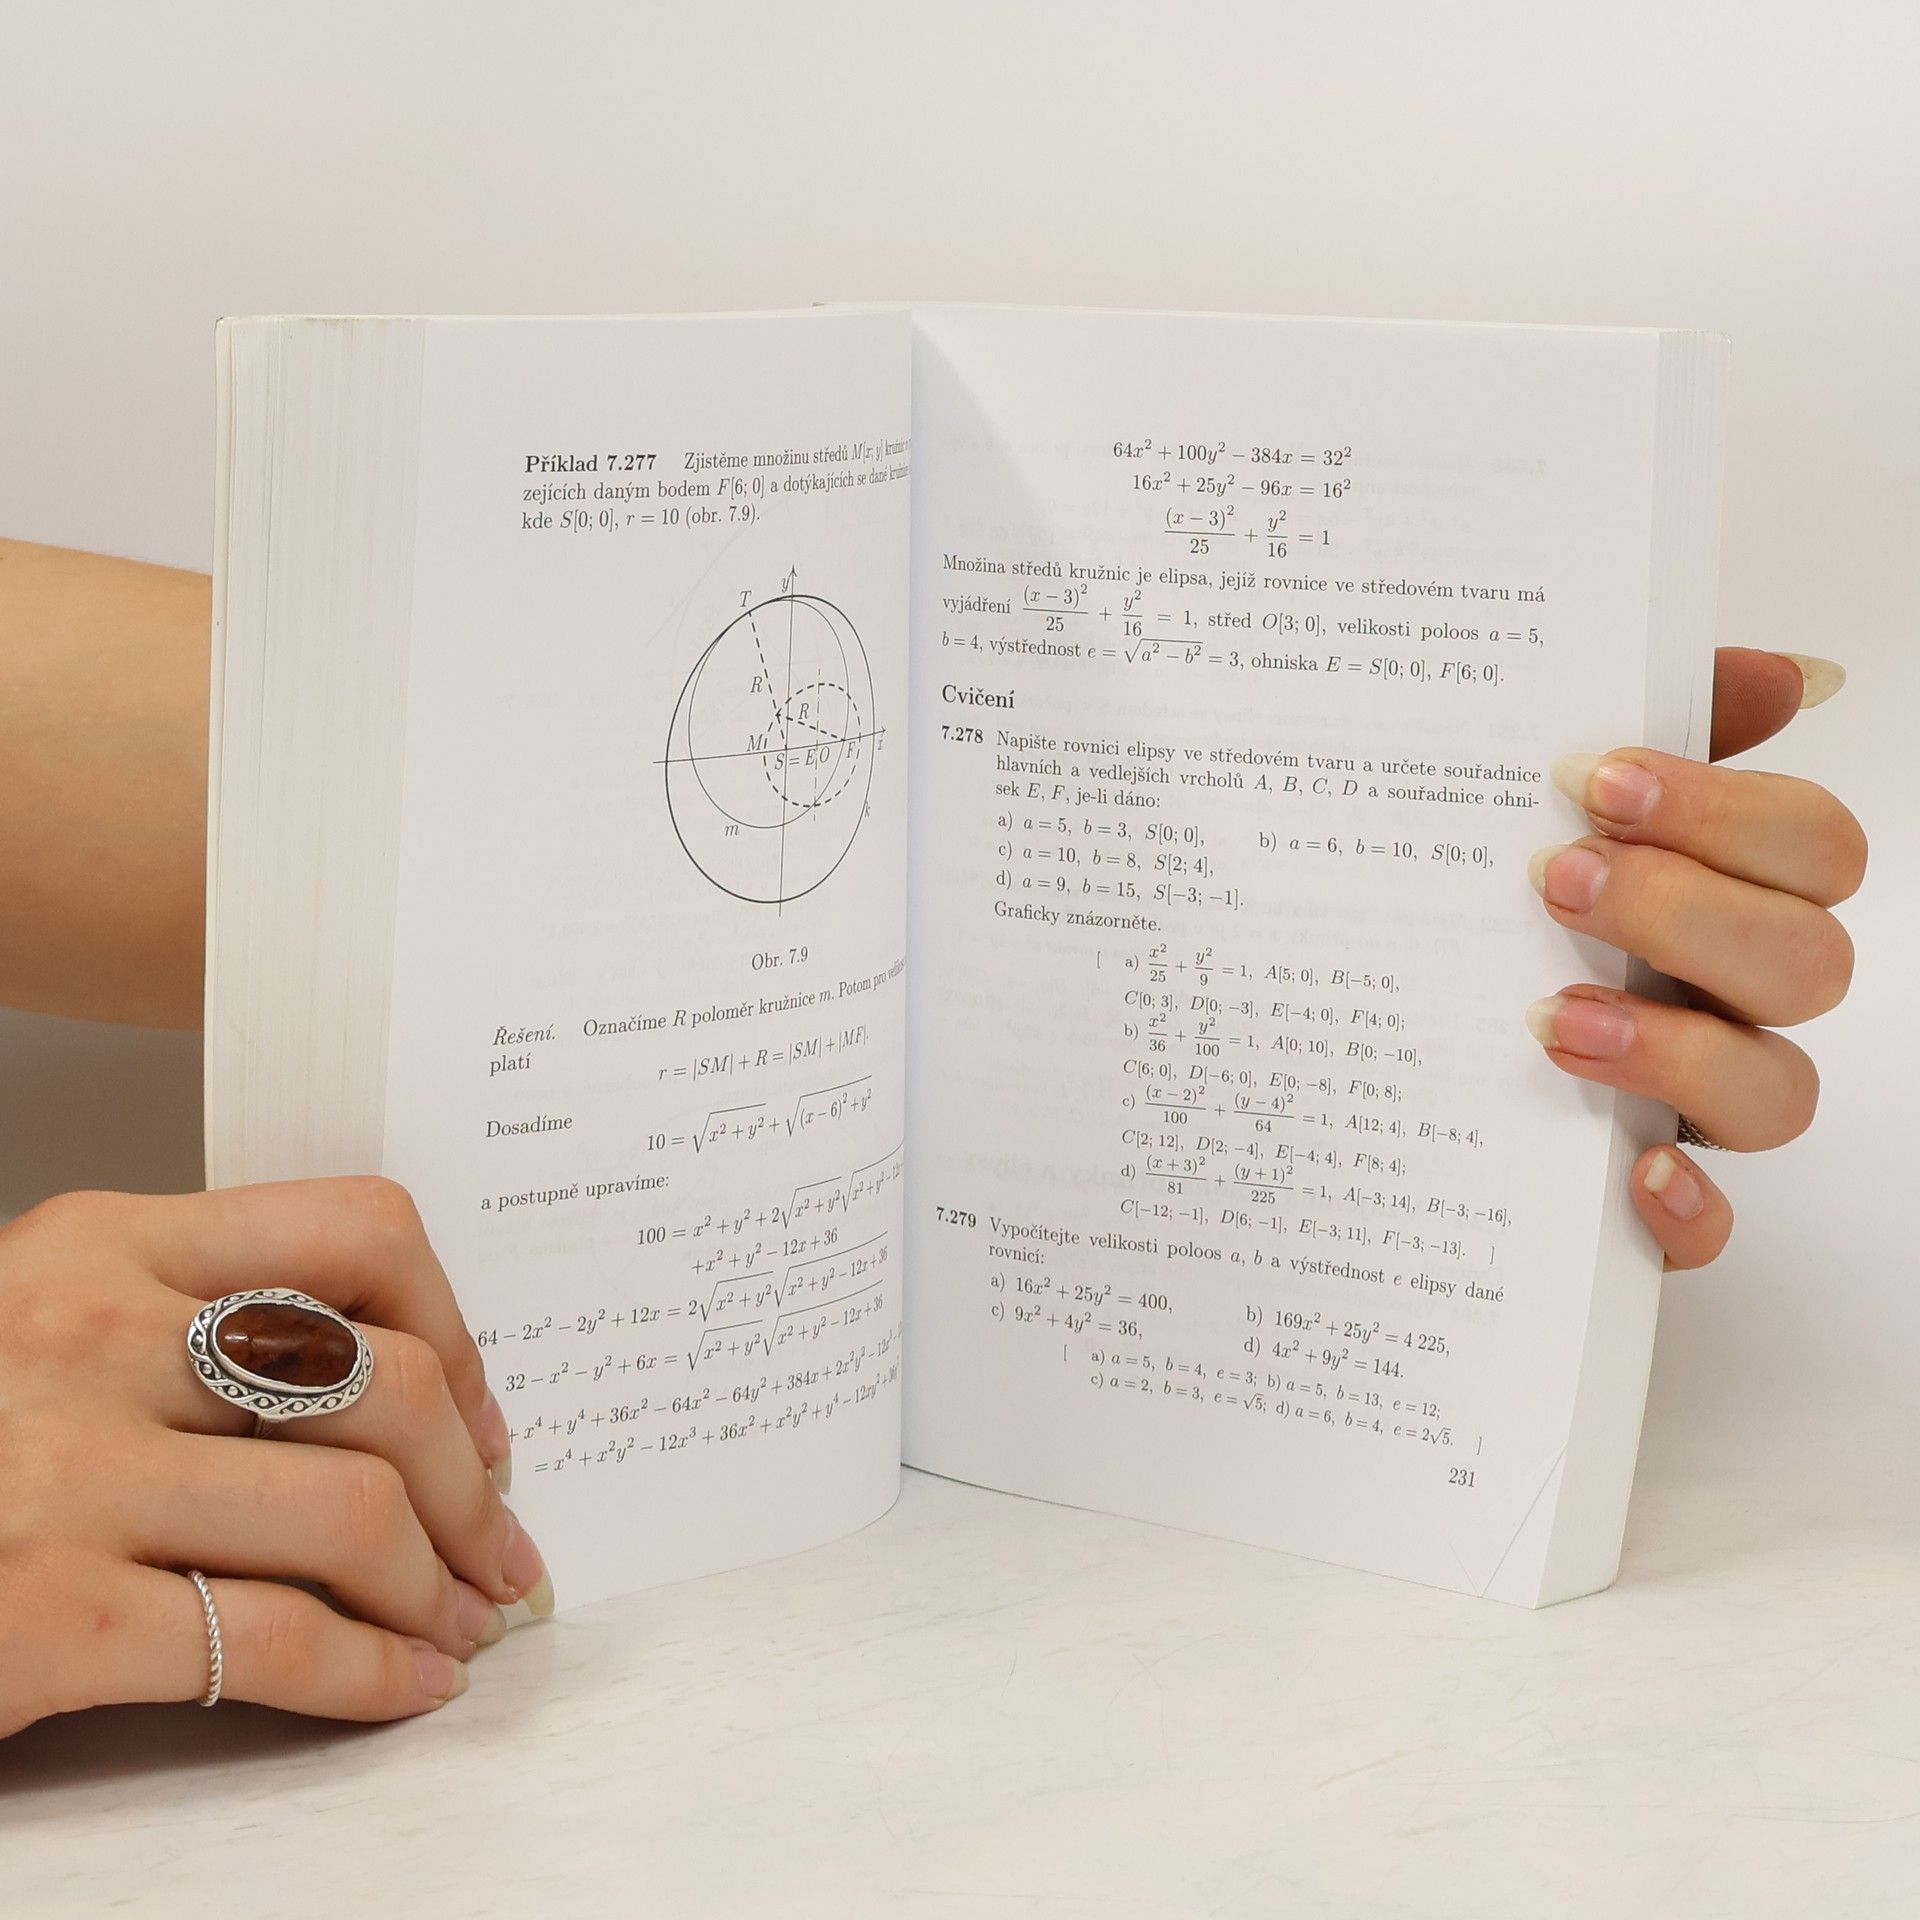 Příklad 7.277 Zjistěme množinu středů M[x; y] kružnic
zejících daným bodem F[6; 0] a dotýkajících se dané
kde S[0; 0], r = 10 (obr. 7.9).
y
T
R
R
M
S = E O F x
m k
Obr. 7.9
Řešení. Označíme R poloměr kružnice m. Potom pro
platí
r = |SM| + R = |SM| + |MF|.
Dosadíme
10 = √(x² + y²) + √((x − 6)² + y²)
a postupně upravíme:
100 = x² + y² + 2√(x² + y²)√(x² + y² − 12x
+x² + y² − 12x + 36
64 − 2x² − 2y² + 12x = 2√(x² + y²)√(x² + y² − 12x + 36)
32 − x² − y² + 6x = √(x² + y²)√(x² + y² − 12x + 36)
+ x⁴ + y⁴ + 36x² − 64x² − 64y² + 384x + 2x²y² − 12x³
= x⁴ + x²y² − 12x³ + 36x² + x²y² + y⁴ − 12xy² + 36y²
64x² + 100y² − 384x = 32²
16x² + 25y² − 96x = 16²
(x − 3)²/25 + y²/16 = 1
Množina středů kružnic je elipsa, jejíž rovnice ve středovém tvaru má
vyjádření (x − 3)²/25 + y²/16 = 1, střed O[3; 0], velikosti poloos a = 5,
b = 4, výstřednost e = √(a² − b²) = 3, ohniska E = S[0; 0], F[6; 0].
Cvičení
7.278 Napište rovnici elipsy ve středovém tvaru a určete souřadnice
hlavních a vedlejších vrcholů A, B, C, D a souřadnice ohni-
sek E, F, je-li dáno:
a) a = 5, b = 3, S[0; 0], b) a = 6, b = 10, S[0; 0],
c) a = 10, b = 8, S[2; 4],
d) a = 9, b = 15, S[−3; −1].
Graficky znázorněte.
[ a) x²/25 + y²/9 = 1, A[5; 0], B[−5; 0],
C[0; 3], D[0; −3], E[−4; 0], F[4; 0];
b) x²/36 + y²/100 = 1, A[0; 10], B[0; −10],
C[6; 0], D[−6; 0], E[0; −8], F[0; 8];
c) (x − 2)²/100 + (y − 4)²/64 = 1, A[12; 4], B[−8; 4],
C[2; 12], D[2; −4], E[−4; 4], F[8; 4];
d) (x + 3)²/81 + (y + 1)²/225 = 1, A[−3; 14], B[−3; −16],
C[−12; −1], D[6; −1], E[−3; 11], F[−3; −13]. ]
7.279 Vypočítejte velikosti poloos a, b a výstřednost e elipsy dané
rovnicí:
a) 16x² + 25y² = 400, b) 169x² + 25y² = 4 225,
c) 9x² + 4y² = 36, d) 4x² + 9y² = 144.
[ a) a = 5, b = 4, e = 3; b) a = 5, b = 13, e = 12;
c) a = 2, b = 3, e = √5; d) a = 6, b = 4, e = 2√5. ]
231